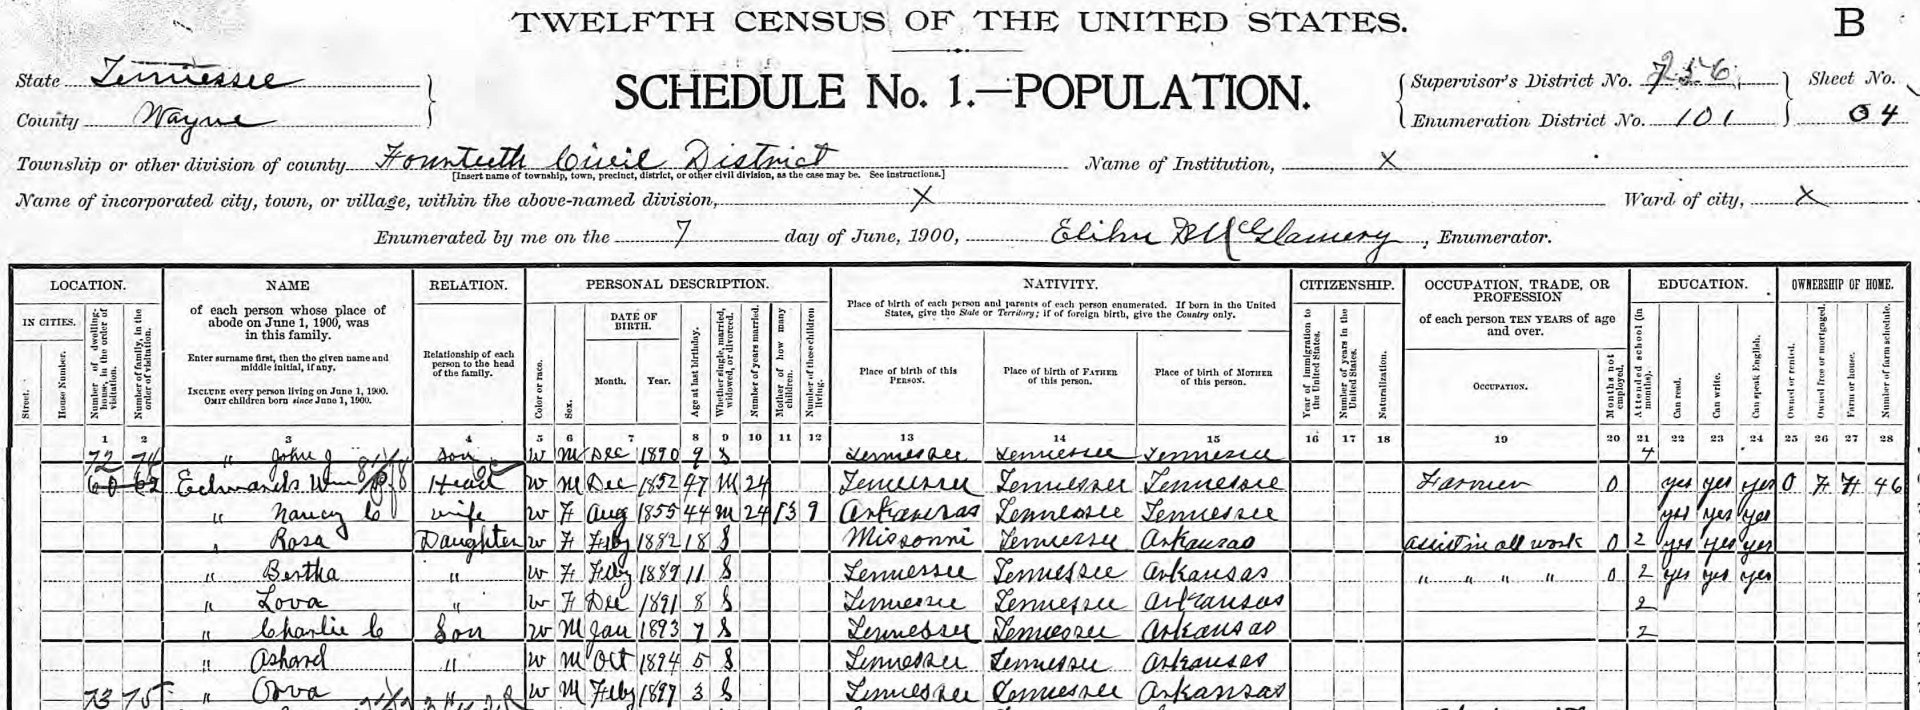 TWELFTH CENSUS OF THE UNITED STATES.
B
SCHEDULE No. 1.—POPULATION.
State Tennessee
County Wayne
Supervisor's District No.
Enumeration District No. 101
Sheet No.
04
Township or other division of county Fournteeth Civil District
[Insert name of township, town, precinct, district, or other civil division, as the case may be. See instructions.]
Name of Institution, X
Name of incorporated city, town, or village, within the above-named division, X
Ward of city, X
Enumerated by me on the 7 day of June, 1900, Elihu D McGlamery, Enumerator.
LOCATION.
IN CITIES.
Street.
House Number.
Number of dwelling-house, in the order of visitation.
Number of family, in the order of visitation.
NAME
of each person whose place of abode on June 1, 1900, was in this family.
Enter surname first, then the given name and middle initial, if any.
INCLUDE every person living on June 1, 1900.
OMIT children born since June 1, 1900.
RELATION.
Relationship of each person to the head of the family.
PERSONAL DESCRIPTION.
Color or race.
Sex.
DATE OF BIRTH.
Month.
Year.
Age at last birthday.
Whether single, married, widowed, or divorced.
Number of years married.
Mother of how many children.
Number of these children living.
NATIVITY.
Place of birth of each person and parents of each person enumerated. If born in the United States, give the State or Territory; if of foreign birth, give the Country only.
Place of birth of this PERSON.
Place of birth of FATHER of this person.
Place of birth of MOTHER of this person.
CITIZENSHIP.
Year of immigration to the United States.
Number of years in the United States.
Naturalization.
OCCUPATION, TRADE, OR PROFESSION
of each person TEN YEARS of age and over.
OCCUPATION.
Months not employed.
EDUCATION.
Attended school (in months).
Can read.
Can write.
Can speak English.
OWNERSHIP OF HOME.
Owned or rented.
Owned free or mortgaged.
Farm or house.
Number of farm schedule.
1 2 3 4 5 6 7 8 9 10 11 12 13 14 15 16 17 18 19 20 21 22 23 24 25 26 27 28
72 74 " John J son W M Dec 1890 9 S Tennessee Tennessee Tennessee 4
Edwards Wm Head W M Dec 1852 47 M 24 Tennessee Tennessee Tennessee Farmer 0 yes yes yes O F F 46
" Nancy C wife W F Aug 1855 44 M 24 13 9 Arkansas Tennessee Tennessee yes yes yes
" Rosa Daughter W F Feby 1882 18 S Missouri Tennessee Arkansas assist in all work 0 2 yes yes yes
" Bertha " W F Feby 1889 11 S Tennessee Tennessee Arkansas " " " " 0 2 yes yes yes
" Lova " W F Dec 1891 8 S Tennessee Tennessee Arkansas 2
" Charlie C Son W M Jan 1893 7 S Tennessee Tennessee Arkansas 2
" Ashard " W M Oct 1894 5 S Tennessee Tennessee Arkansas
73 75 " Orva " W M Feby 1897 3 S Tennessee Tennessee Arkansas